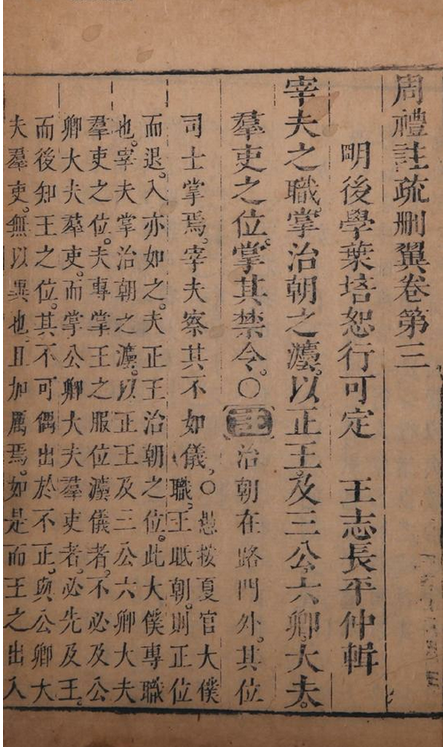 周禮註疏刪翼卷第三
明後學葉培恕行可定　王志長平仲輯
宰夫之職掌治朝之灋以正王及三公六卿大夫
羣吏之位掌其禁令○註治朝在路門外其位
司士掌焉宰夫察其不如儀○愚按夏官大僕
職王眡朝則正位
而退入亦如之夫正王治朝之位此大僕專職
也宰夫掌治朝之灋以正王及三公六卿大夫
羣吏之位夫專掌王之服位灋儀者不必及公
卿大夫羣吏而掌公卿大夫羣吏者必先及王
而後知王之位其不可偶出於不正與公卿大
夫羣吏無以異也且加厲焉如是而王之出入